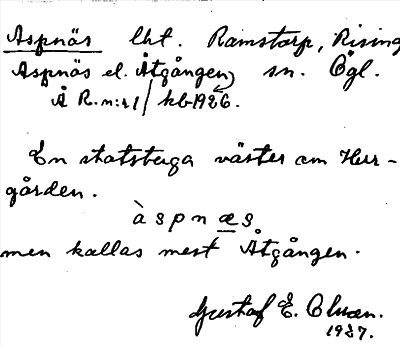 Aspnäs lht. Ramstorp, Rising
Aspnäs el. Åtgången sn. Ögl.
Å R.n:r 1 / kb 1926.
En statstuga väster om Herr-
gården.
àspnæs
men kallas mest Åtgången.
Gustaf E.
1937.